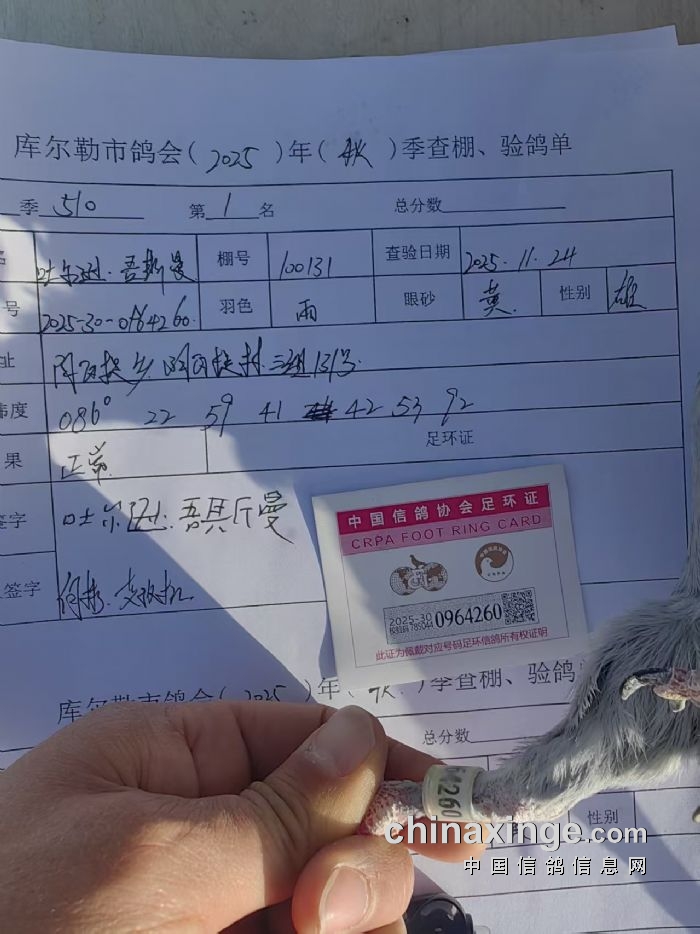 库尔勒市鸽会(2025)年(秋)季查棚、验鸽单
季 510 第 1 名 总分数
名 吐尔逊.吾斯曼 棚号 100131 查验日期 2025.11.24
号 2025-30-0964260. 羽色 雨 眼砂 黄. 性别 雄
址 三组131号
纬度 086° 22 59 41 42 53 92
果 正常 足环证
签字 吐尔逊.吾其斤曼
签字
中国信鸽协会足环证
CRPA FOOT RING CARD
2025-30 0964260
校验码 785044
此证为佩戴对应号码足环信鸽所有权证明
库尔勒市鸽会(2025)年(秋)季查棚、验鸽单
总分数
性别
4260
chinaxinge.com
中国信鸽信息网